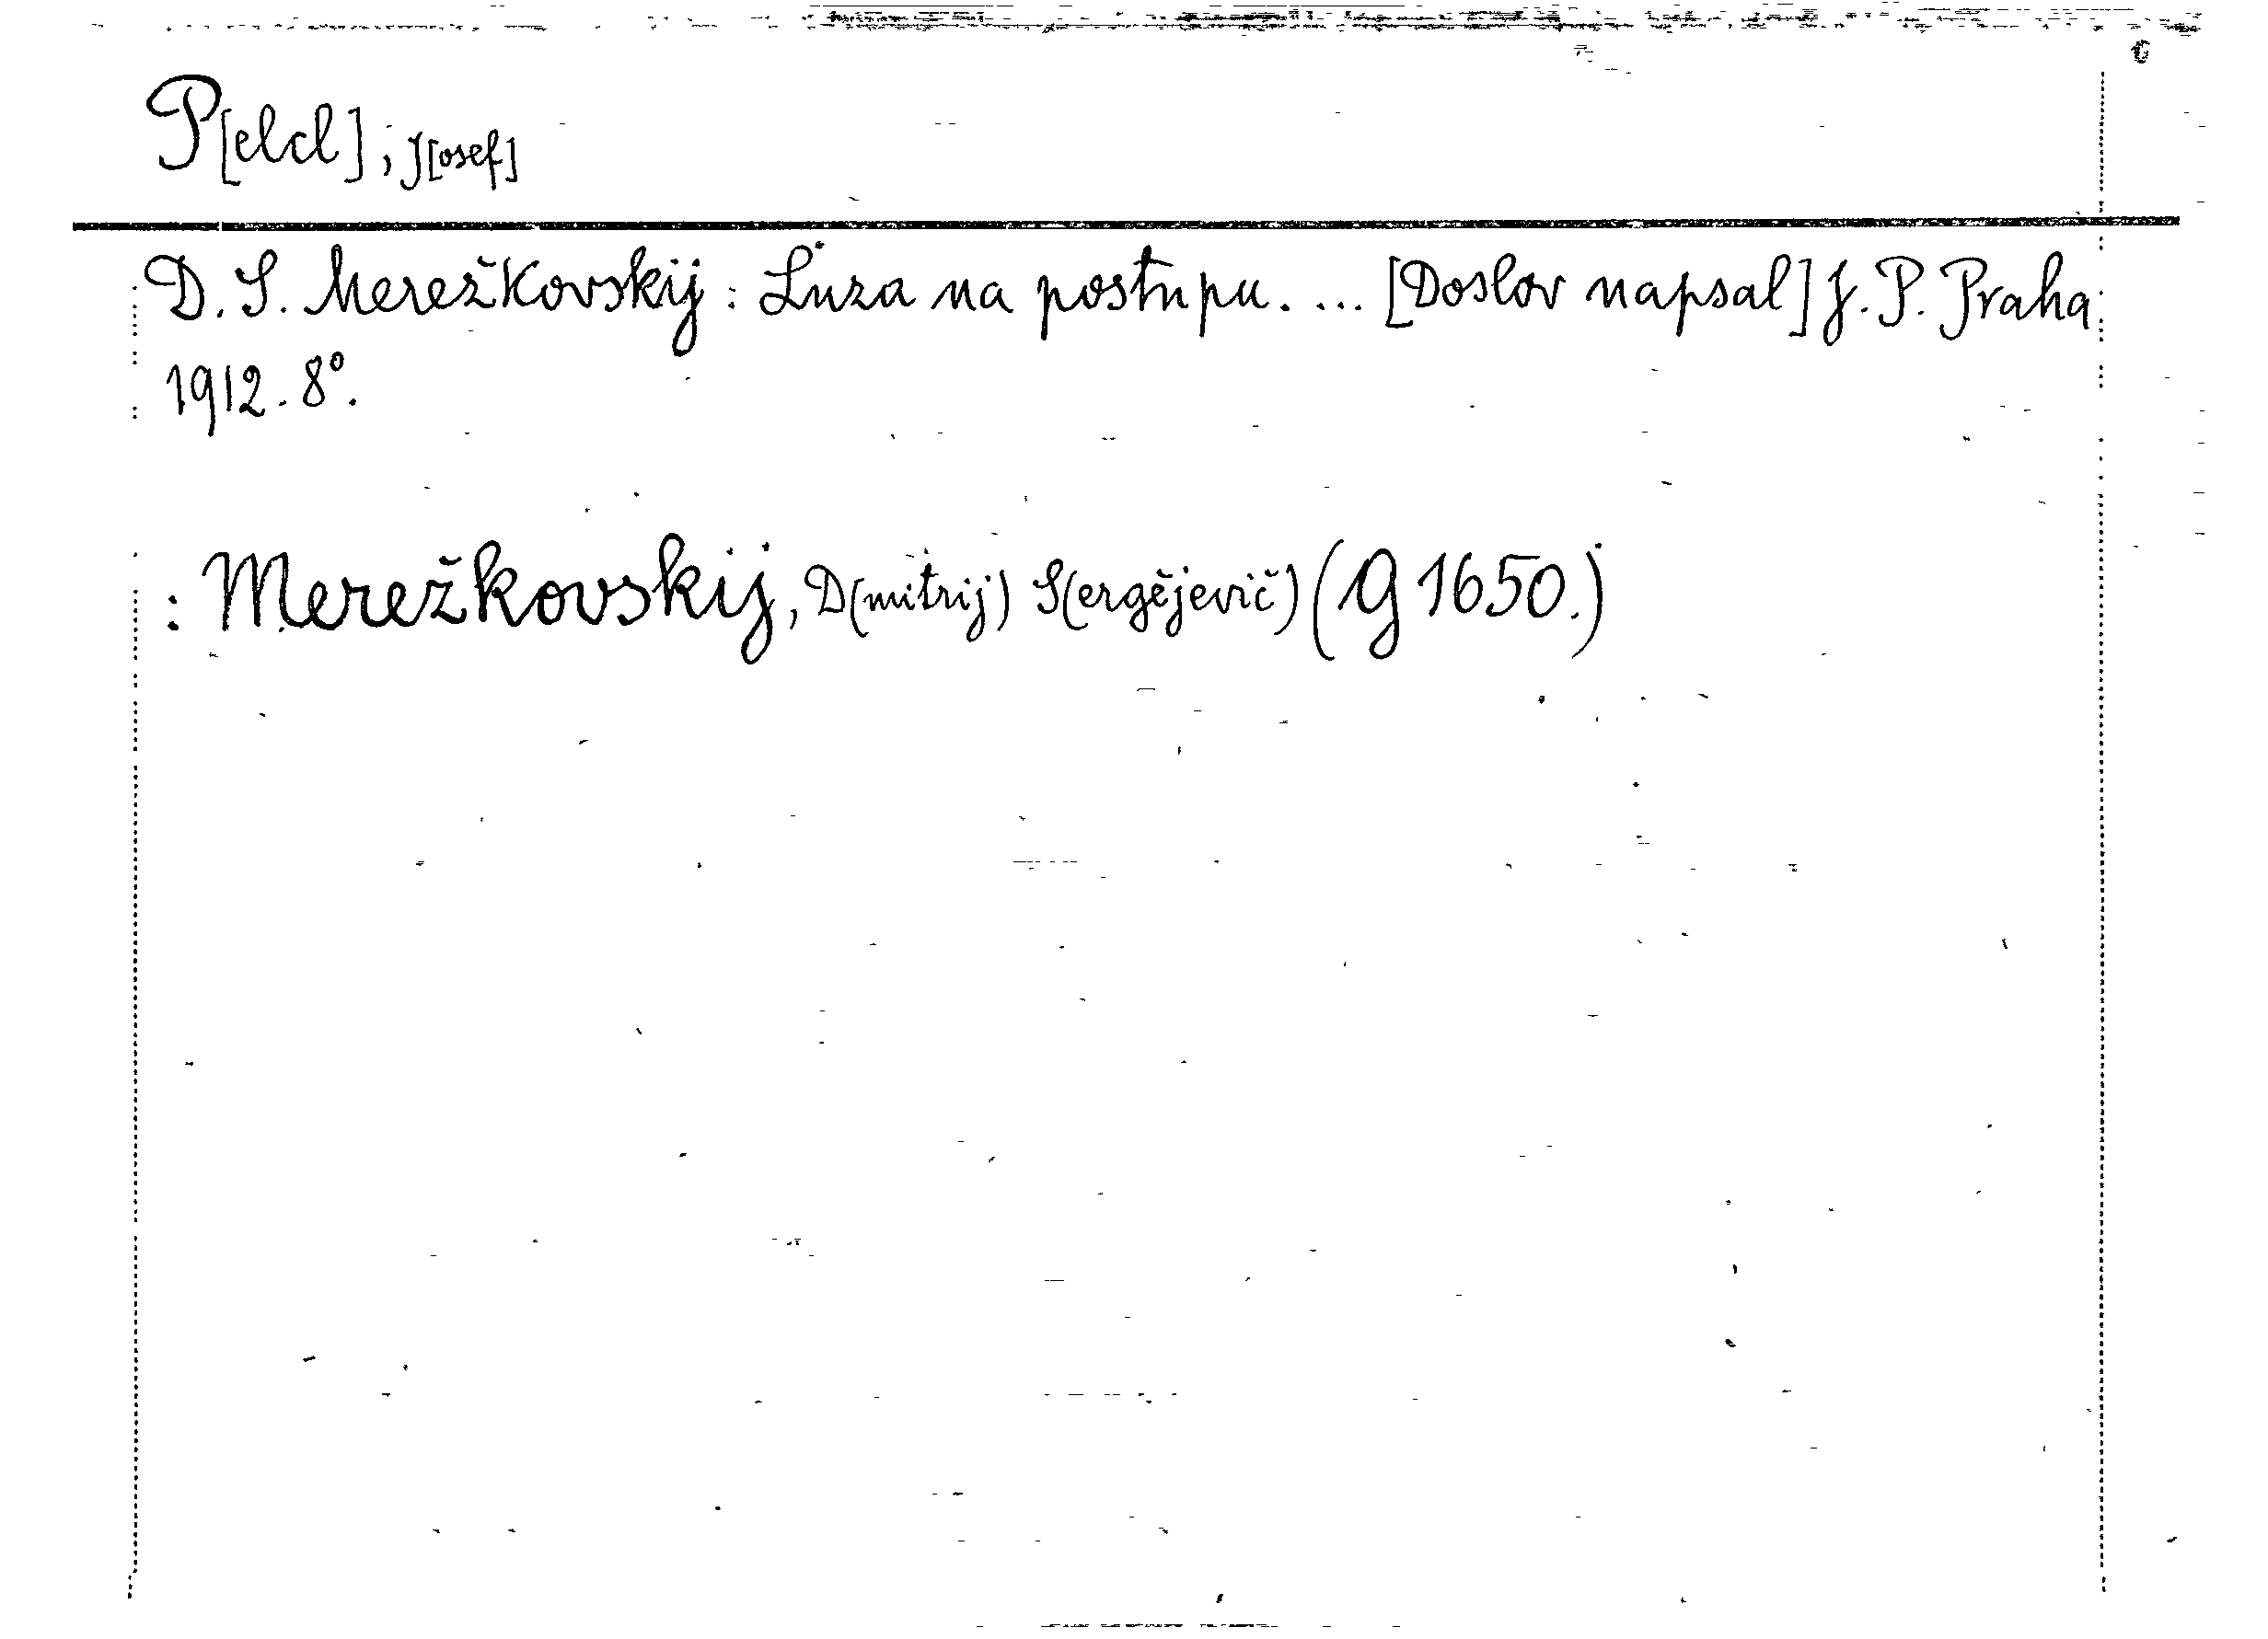 P[elcl], J[osef]
D. S. Merežkovskij: Lůza na postupu. ... [Doslov napsal] J. P. Praha
1912. 8°.
: Merežkovskij, D(mitrij) S(ergějevič) (G 1650.)